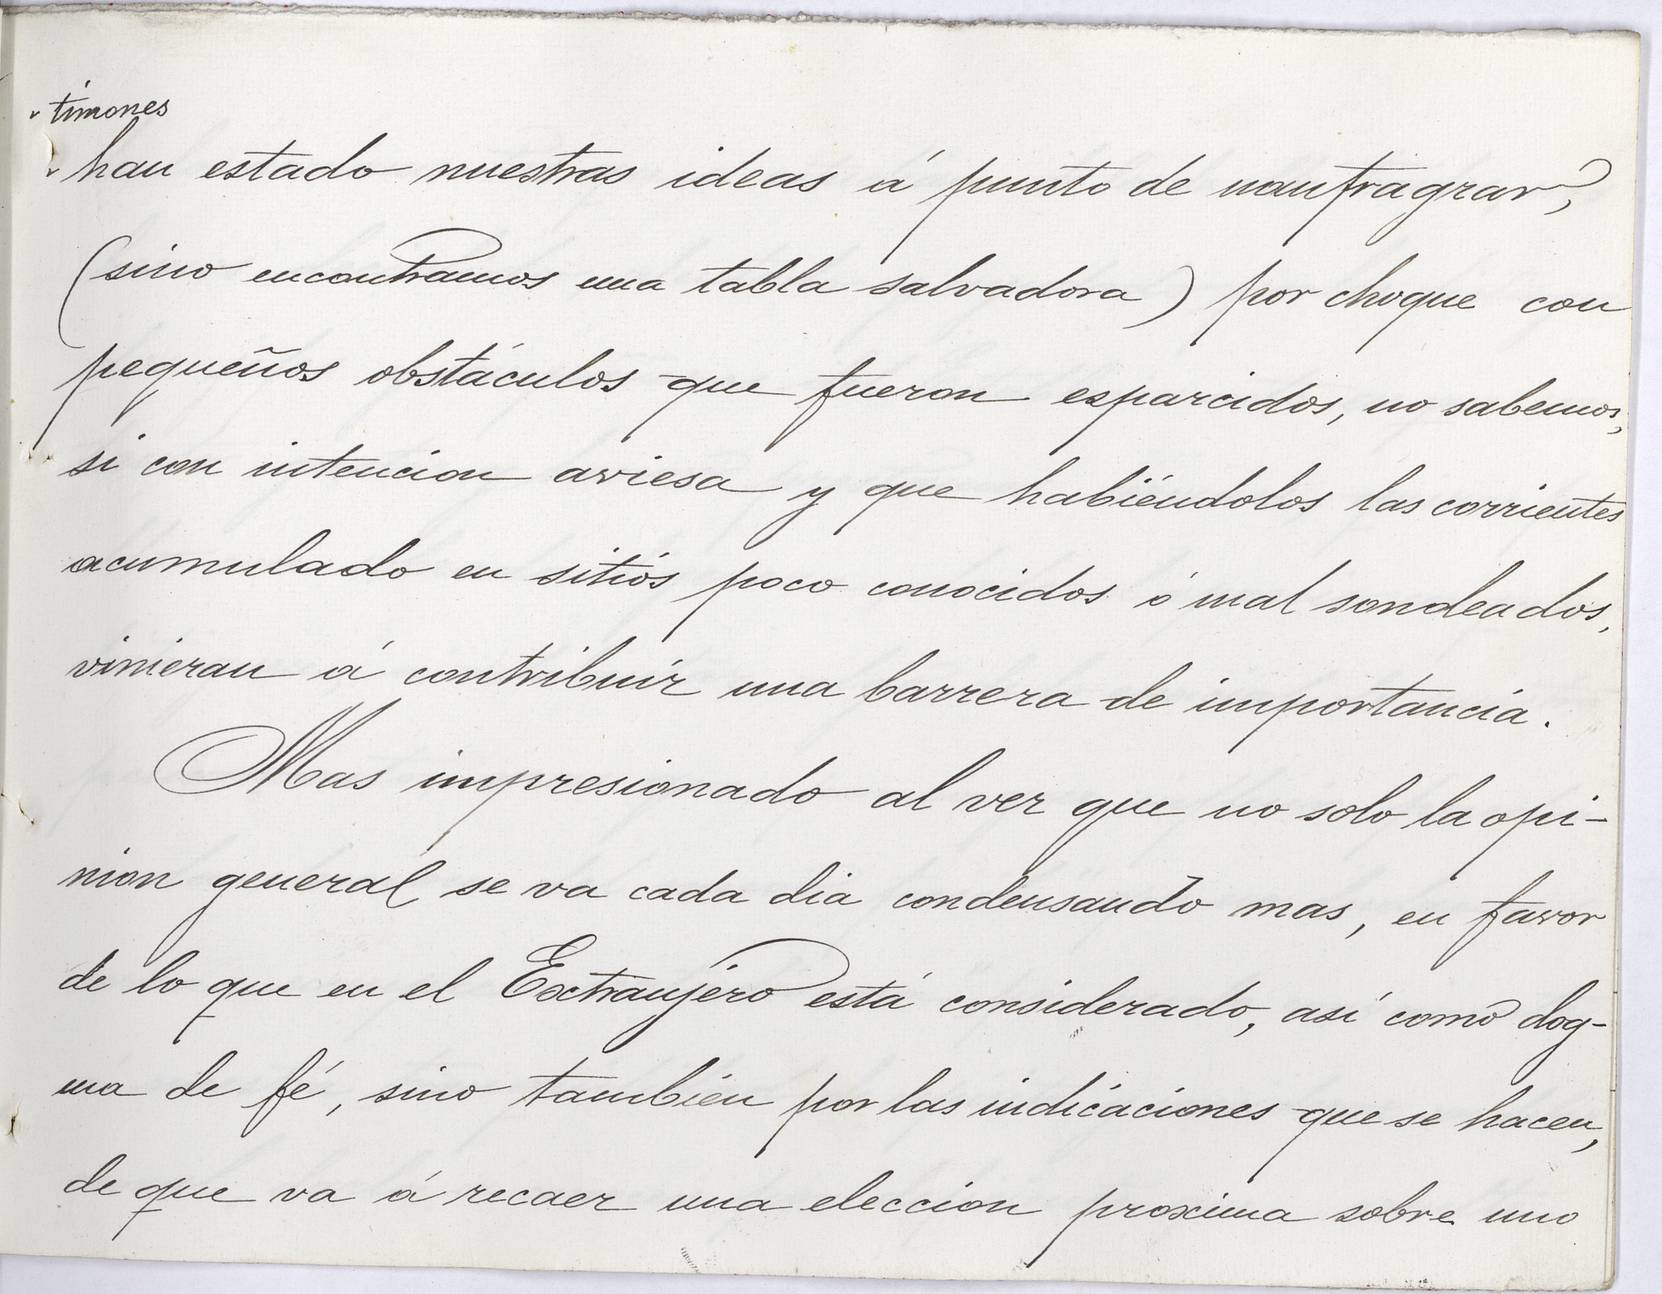 timones
han estado nuestras ideas á punto de naufragrar,
(sino encontramos una tabla salvadora) por choque con
pequeños obstáculos que fueron esparcidos, no sabemos,
si con intencion aviesa y que habiéndolos las corrientes
acumulado en sitios poco conocidos ó mal sondeados,
vinieran á contribuir una barrera de importancia.
Mas impresionado al ver que no solo la opi-
nion general se va cada dia condensando mas, en favor
de lo que en el Extranjero está considerado, asi como dog-
ma de fé, sino tambien por las indicaciones que se hacen,
de que va á recaer una eleccion proxima sobre uno